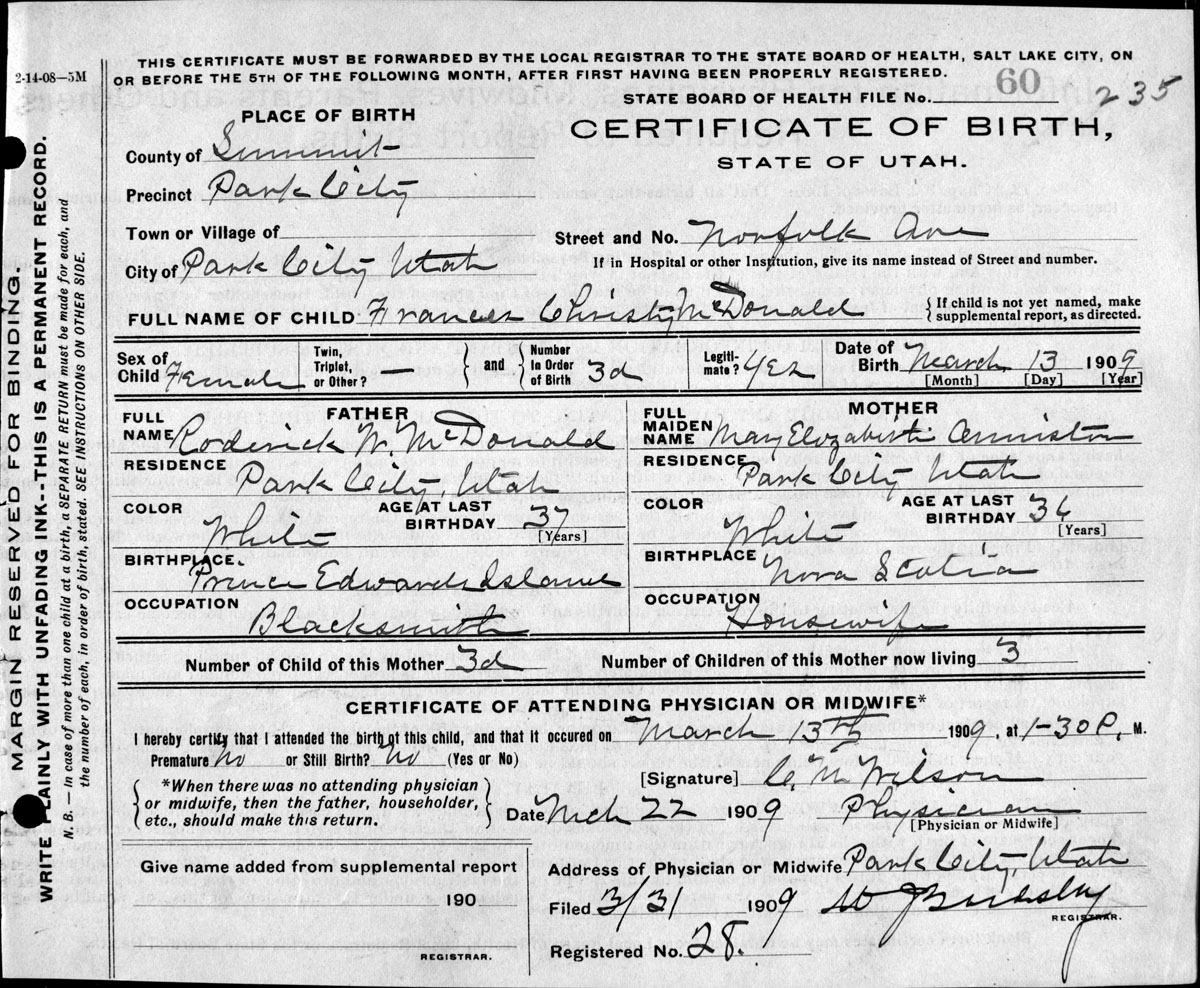 THIS CERTIFICATE MUST BE FORWARDED BY THE LOCAL REGISTRAR TO THE STATE BOARD OF HEALTH, SALT LAKE CITY, ON
2-14-08—5M
OR BEFORE THE 5TH OF THE FOLLOWING MONTH, AFTER FIRST HAVING BEEN PROPERLY REGISTERED.
STATE BOARD OF HEALTH FILE No. 60 235
PLACE OF BIRTH
CERTIFICATE OF BIRTH,
STATE OF UTAH.
County of Summit
Precinct Park City
Town or Village of
Street and No. Norfolk Ave
City of Park City Utah
If in Hospital or other Institution, give its name instead of Street and number.
FULL NAME OF CHILD Frances Christy McDonald
{If child is not yet named, make
supplemental report, as directed.
Sex of Child Female
Twin, Triplet, or Other? —
and
Number In Order of Birth 3d
Legiti-mate? Yes
Date of Birth March 13 1909
[Month] [Day] [Year]
FATHER
FULL NAME Roderick W. McDonald
RESIDENCE Park City, Utah
COLOR White
AGE AT LAST BIRTHDAY 37
[Years]
BIRTHPLACE. Prince Edwards Island
OCCUPATION Blacksmith
MOTHER
FULL MAIDEN NAME Mary Elizabeth
RESIDENCE Park City Utah
COLOR White
AGE AT LAST BIRTHDAY 36
[Years]
BIRTHPLACE Nova Scotia
OCCUPATION Housewife
Number of Child of this Mother 3d Number of Children of this Mother now living 3
CERTIFICATE OF ATTENDING PHYSICIAN OR MIDWIFE*
I hereby certify that I attended the birth of this child, and that it occured on March 13th 1909, at 1-30 P. M.
Premature No or Still Birth? No (Yes or No)
[Signature] C. M. Wilson
*When there was no attending physician
or midwife, then the father, householder,
etc., should make this return.
Date Mch 22 1909 Physician
[Physician or Midwife]
Give name added from supplemental report
190
REGISTRAR.
Address of Physician or Midwife Park City, Utah
Filed 3/31 1909
REGISTRAR.
Registered No. 28.
MARGIN RESERVED FOR BINDING.
WRITE PLAINLY WITH UNFADING INK--THIS IS A PERMANENT RECORD.
N. B.—In case of more than one child at a birth, a SEPARATE RETURN must be made for each, and
the number of each, in order of birth, stated. SEE INSTRUCTIONS ON OTHER SIDE.